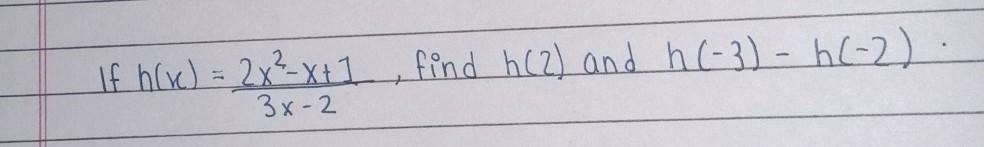 If h(x) = 2x²-x+1 / 3x-2 , find h(2) and h(-3) - h(-2) .